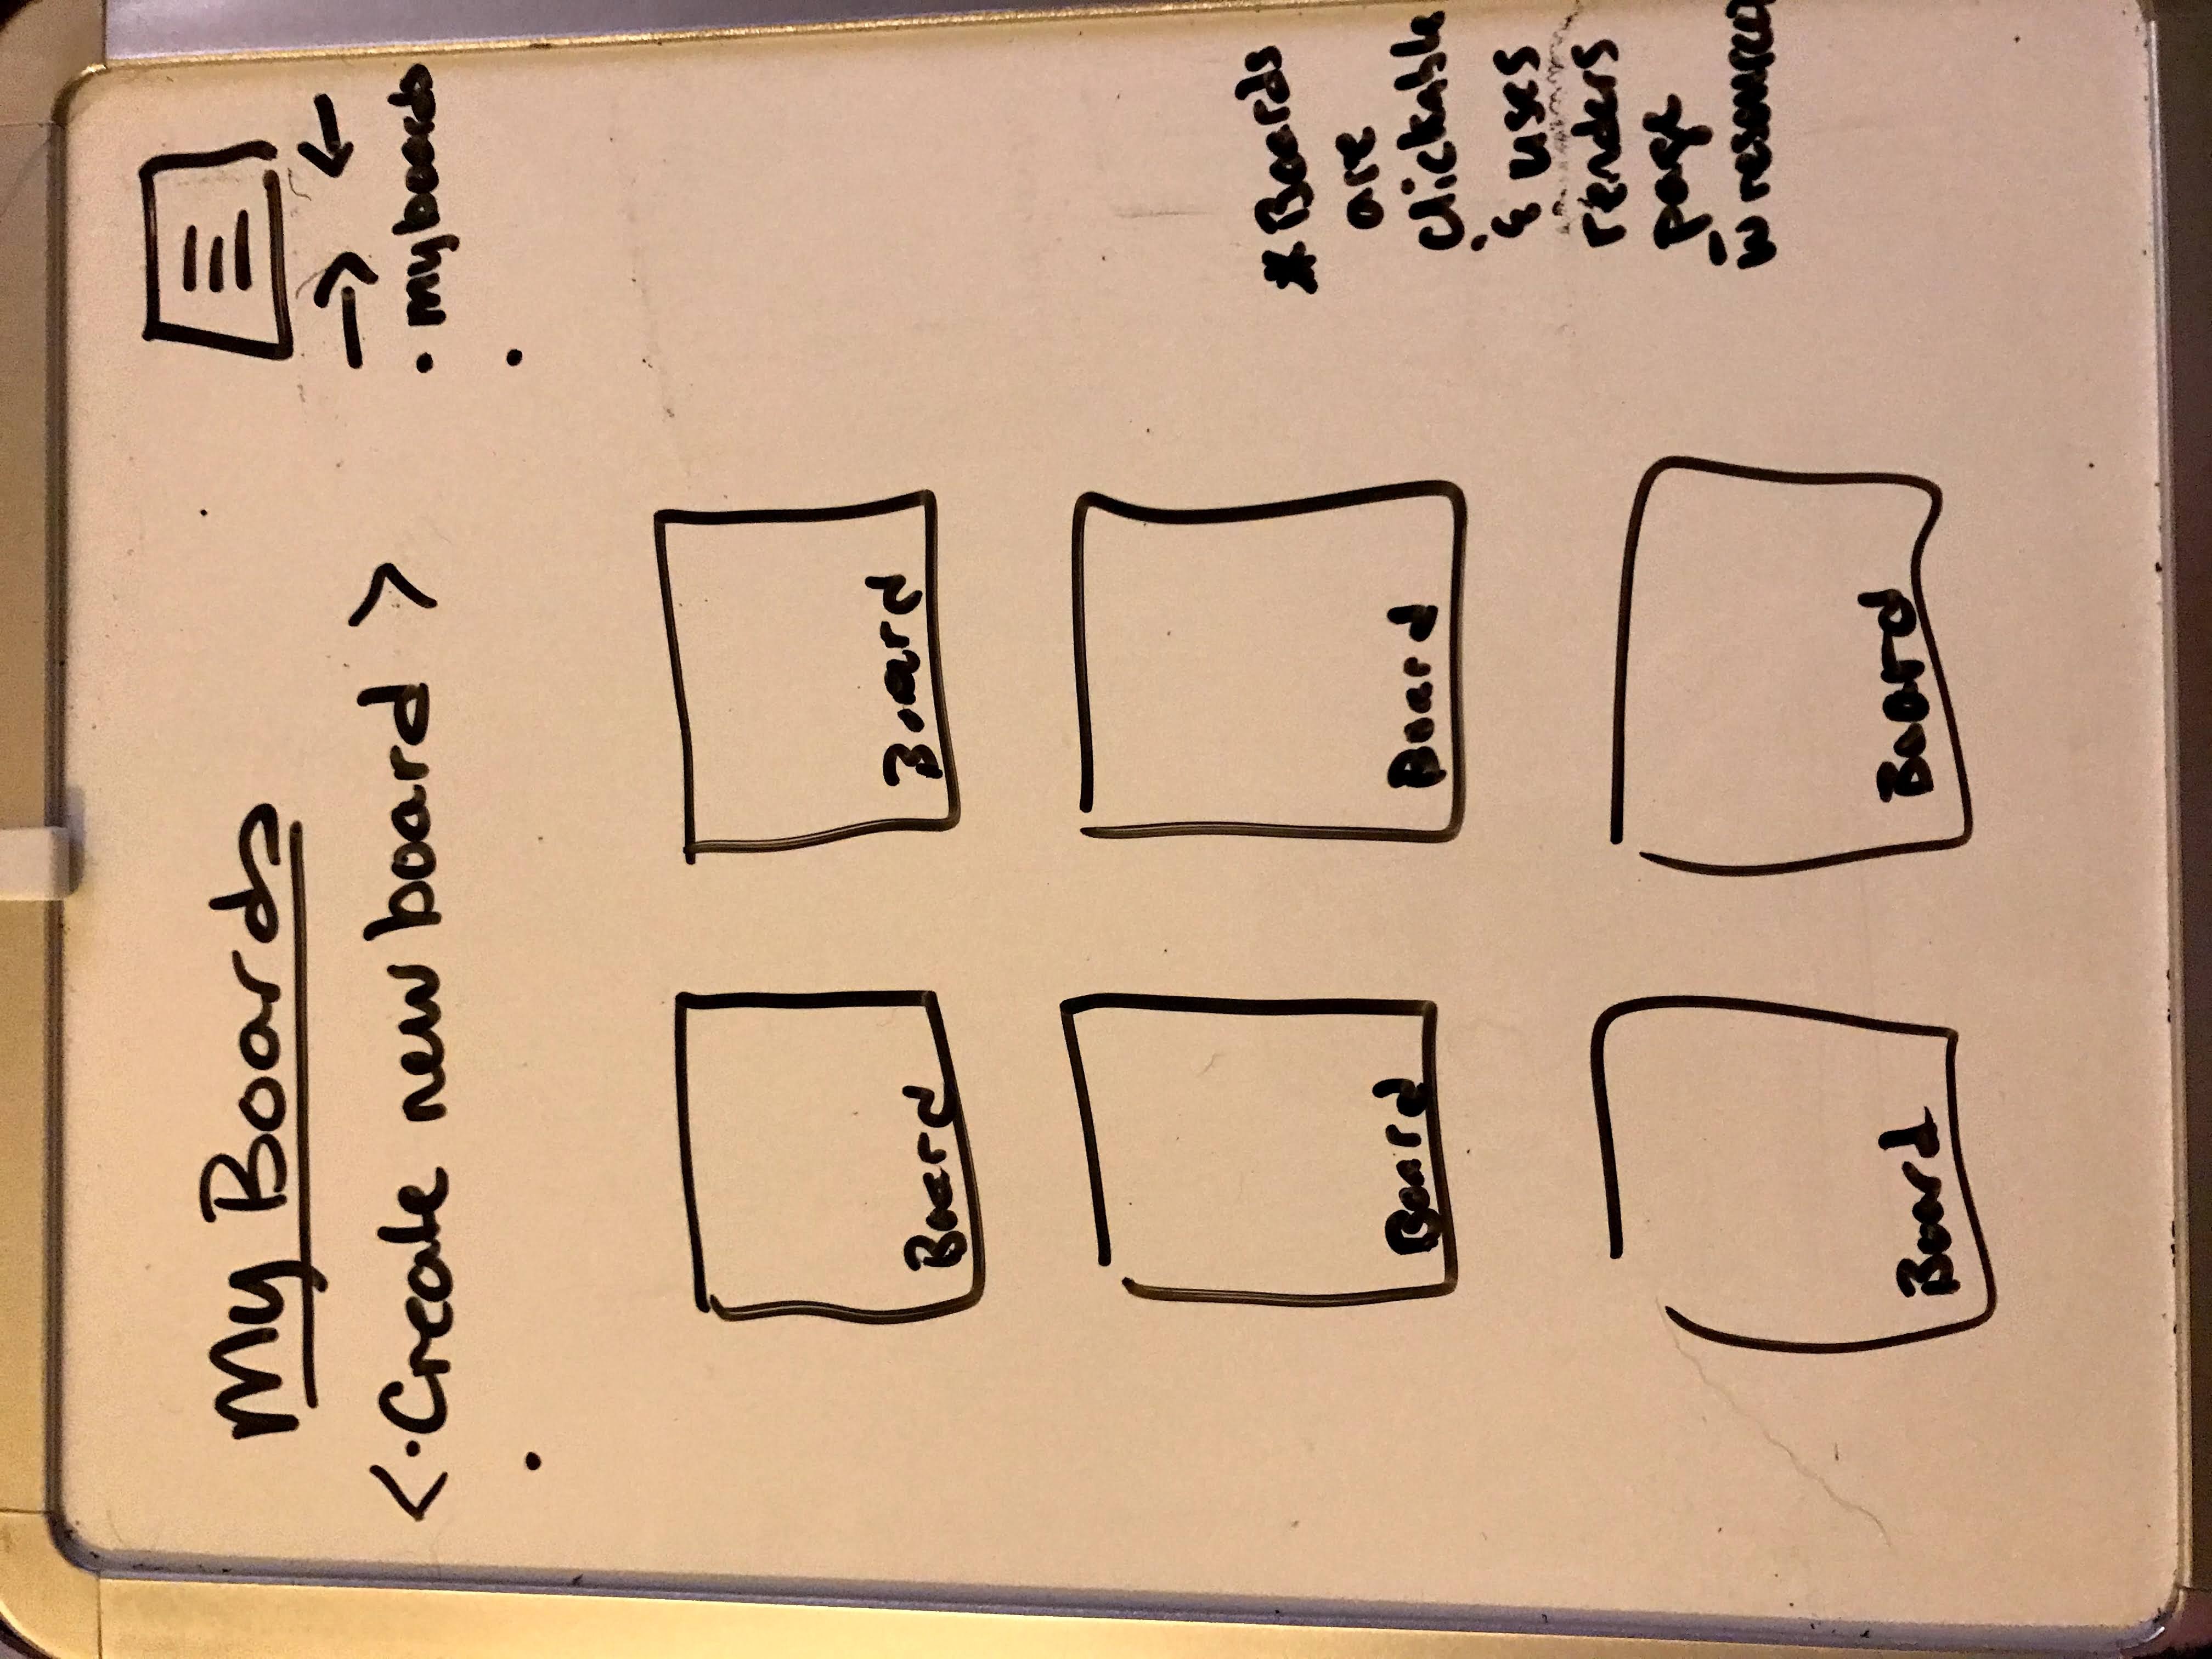 My Boards
<·Create new board >
·
→ ←
· my boards
·
Board
Board
Board
Board
Board
Board
* Boards
are
clickable
& uses
renders
page
w resources